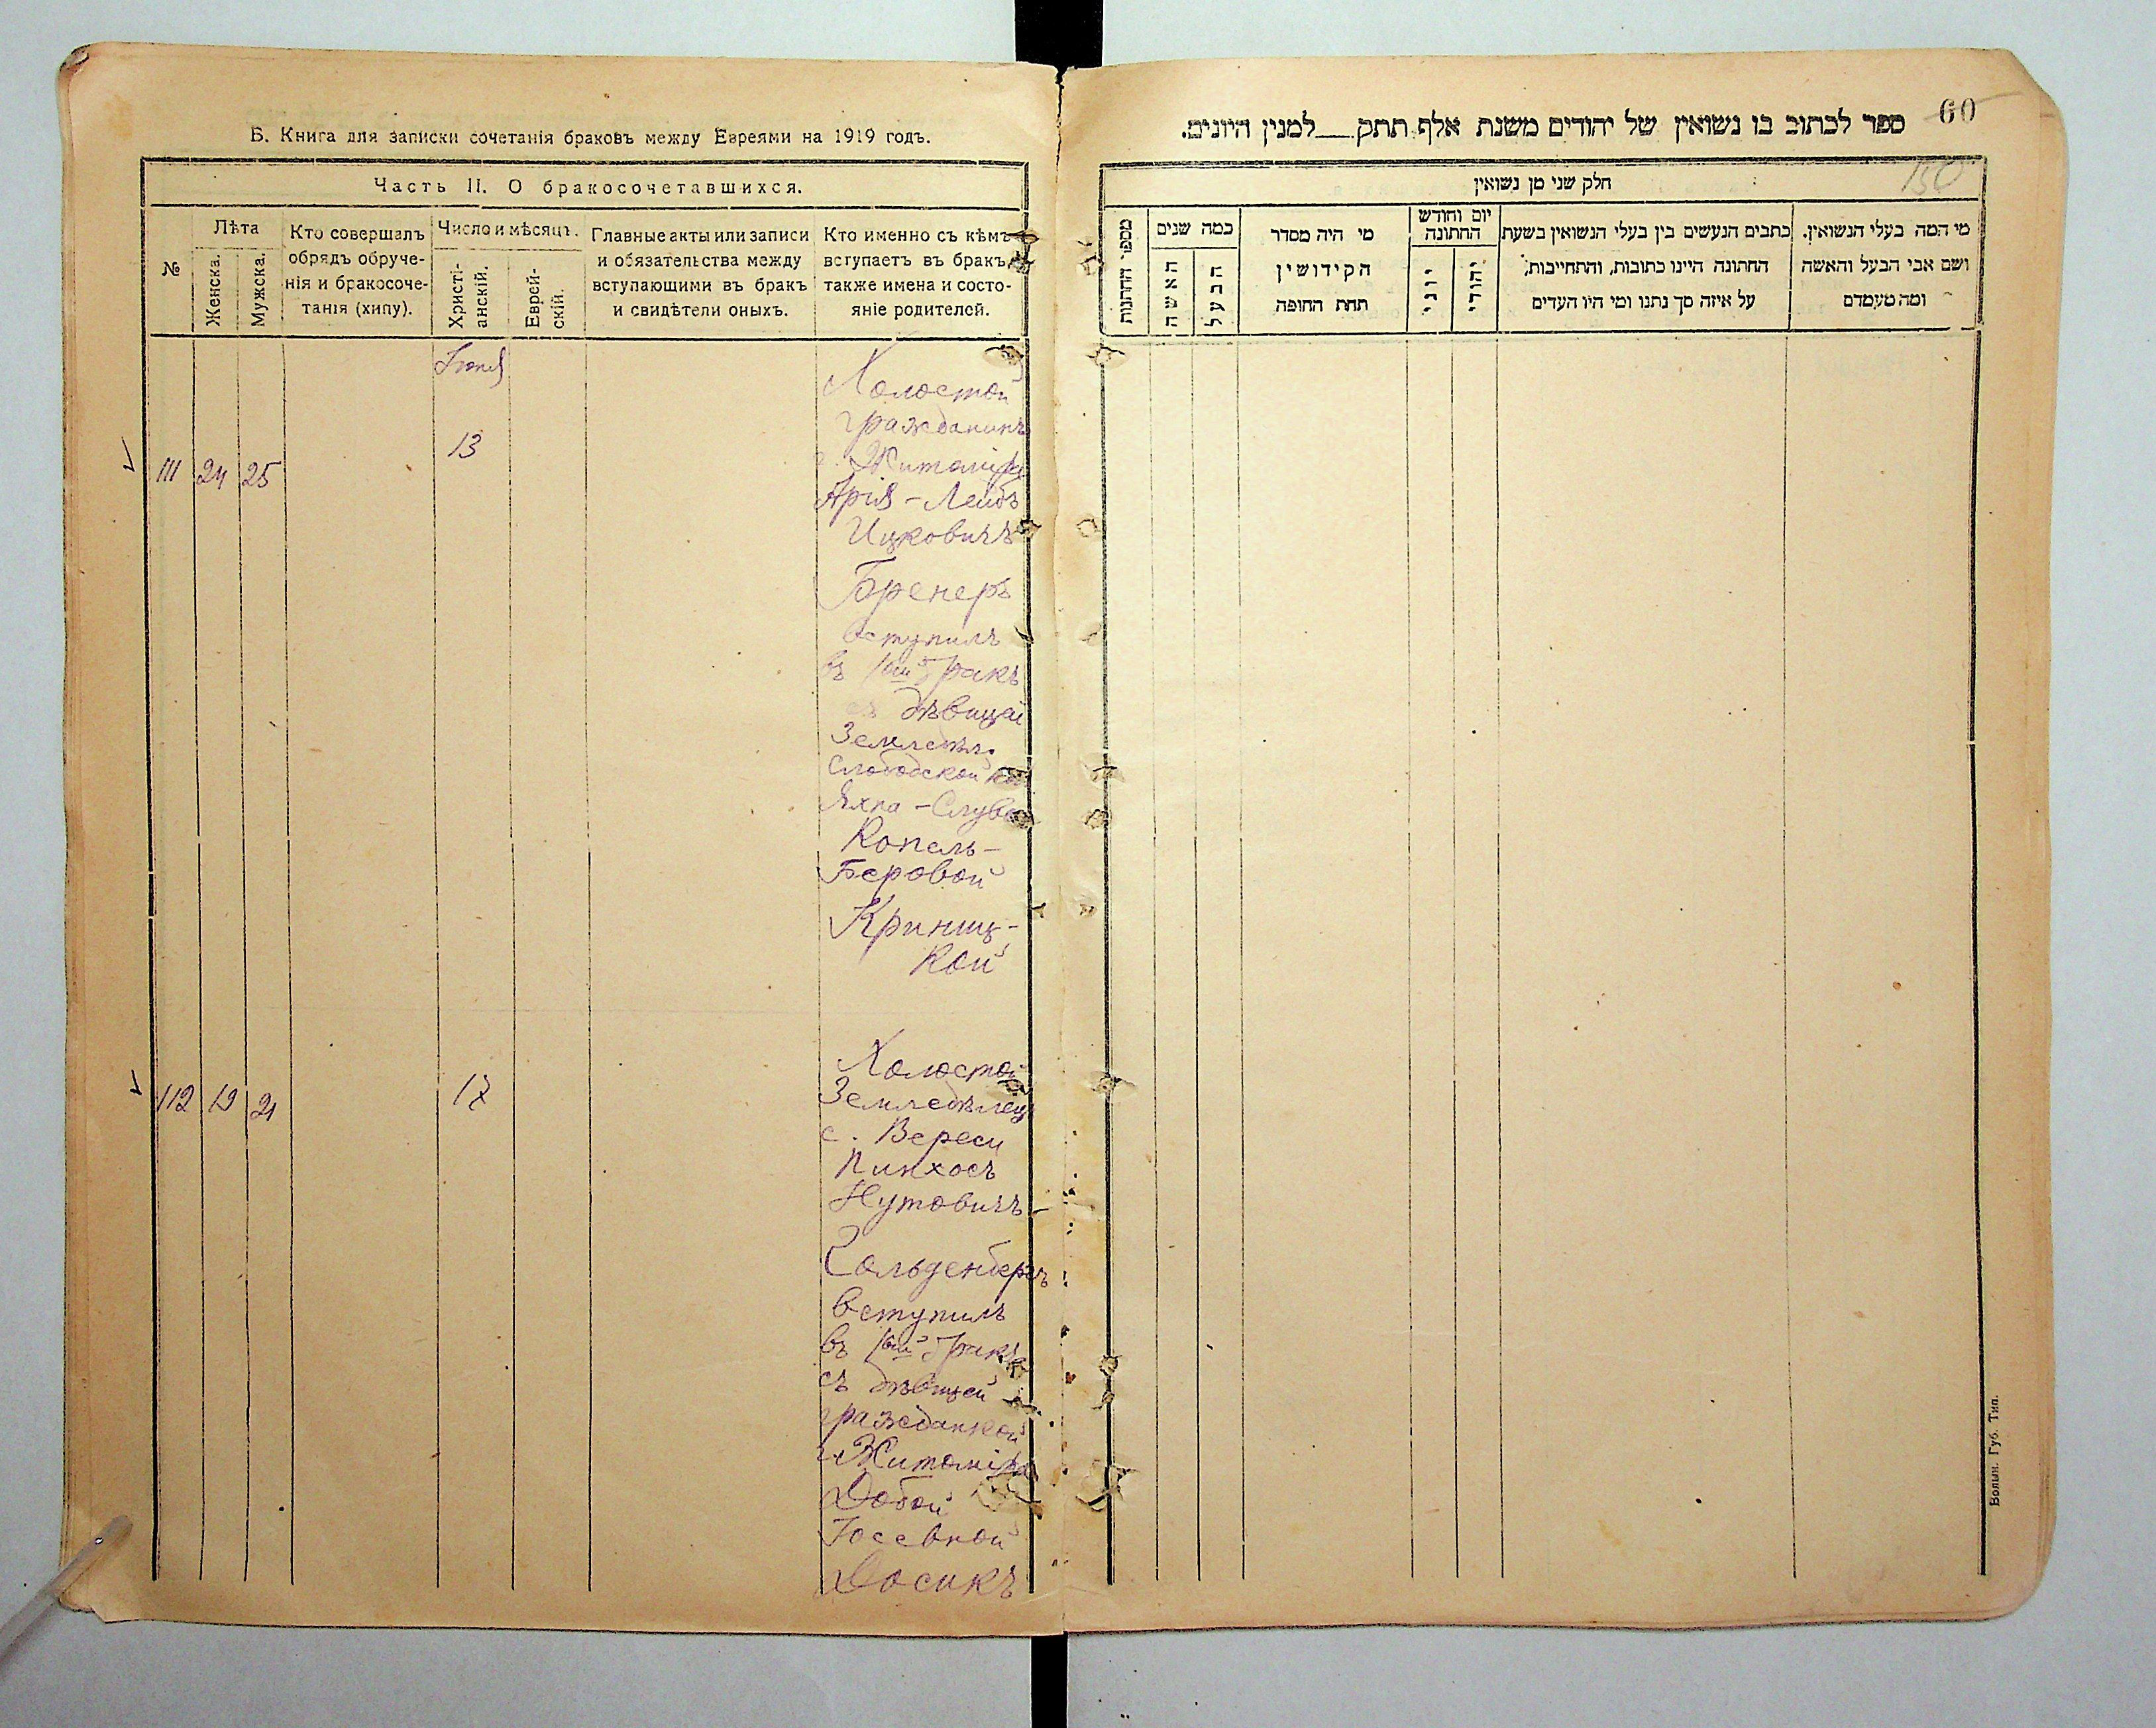 Б. Книга для записки сочетанія браковъ между Евреями на 1919 годъ.
Часть II. О бракосочетавшихся.
№
Лѣта
Женска.
Мужска.
Кто совершалъ
обрядъ обруче-
нія и бракосоче-
танія (хипу).
Число и мѣсяцъ.
Христі-
анскій.
Еврей-
скій.
Главные акты или записи
и обязательства между
вступающими въ бракъ
и свидѣтели оныхъ.
Кто именно съ кѣмъ
вступаетъ въ бракъ,
также имена и состо-
яніе родителей.
111
24
25
13
Холостой
гражданинъ
г. Житоміра
Арія-Лейбъ
Ицковичъ
Бренеръ
вступилъ
въ 1ый бракъ
съ дѣвицей
Земледѣл.
Слободской
Копель-
Беровой
Криниц-
кой
112
19
21
17
Холостой
Земледѣлец
с. Вереси
Пинхосъ
Нутовичъ
Гольденбергъ
вступилъ
въ 1ый бракъ
съ дѣвицей
гражданкой
г. Житоміра
Добой
Іосевной
Досикъ
60
ספר לכתוב בו נשואין של יהודים משנת אלף תתק__למנין היונים.
150
חלק שני מן נשואין
מספר החתונות
כמה שנים
האשה
הבעל
מי היה מסדר
הקידושין
תחת החופה
יום וחודש
החתונה
יוני
יהודי
כתבים הנעשים בין בעלי הנשואין בשעת
החתונה היינו כתובות, והתחייבות,
על איזה סך נתנו ומי היו העדים
מי המה בעלי הנשואין.
ושם אבי הבעל והאשה
ומה מעמדם
Волын. Губ. Тип.